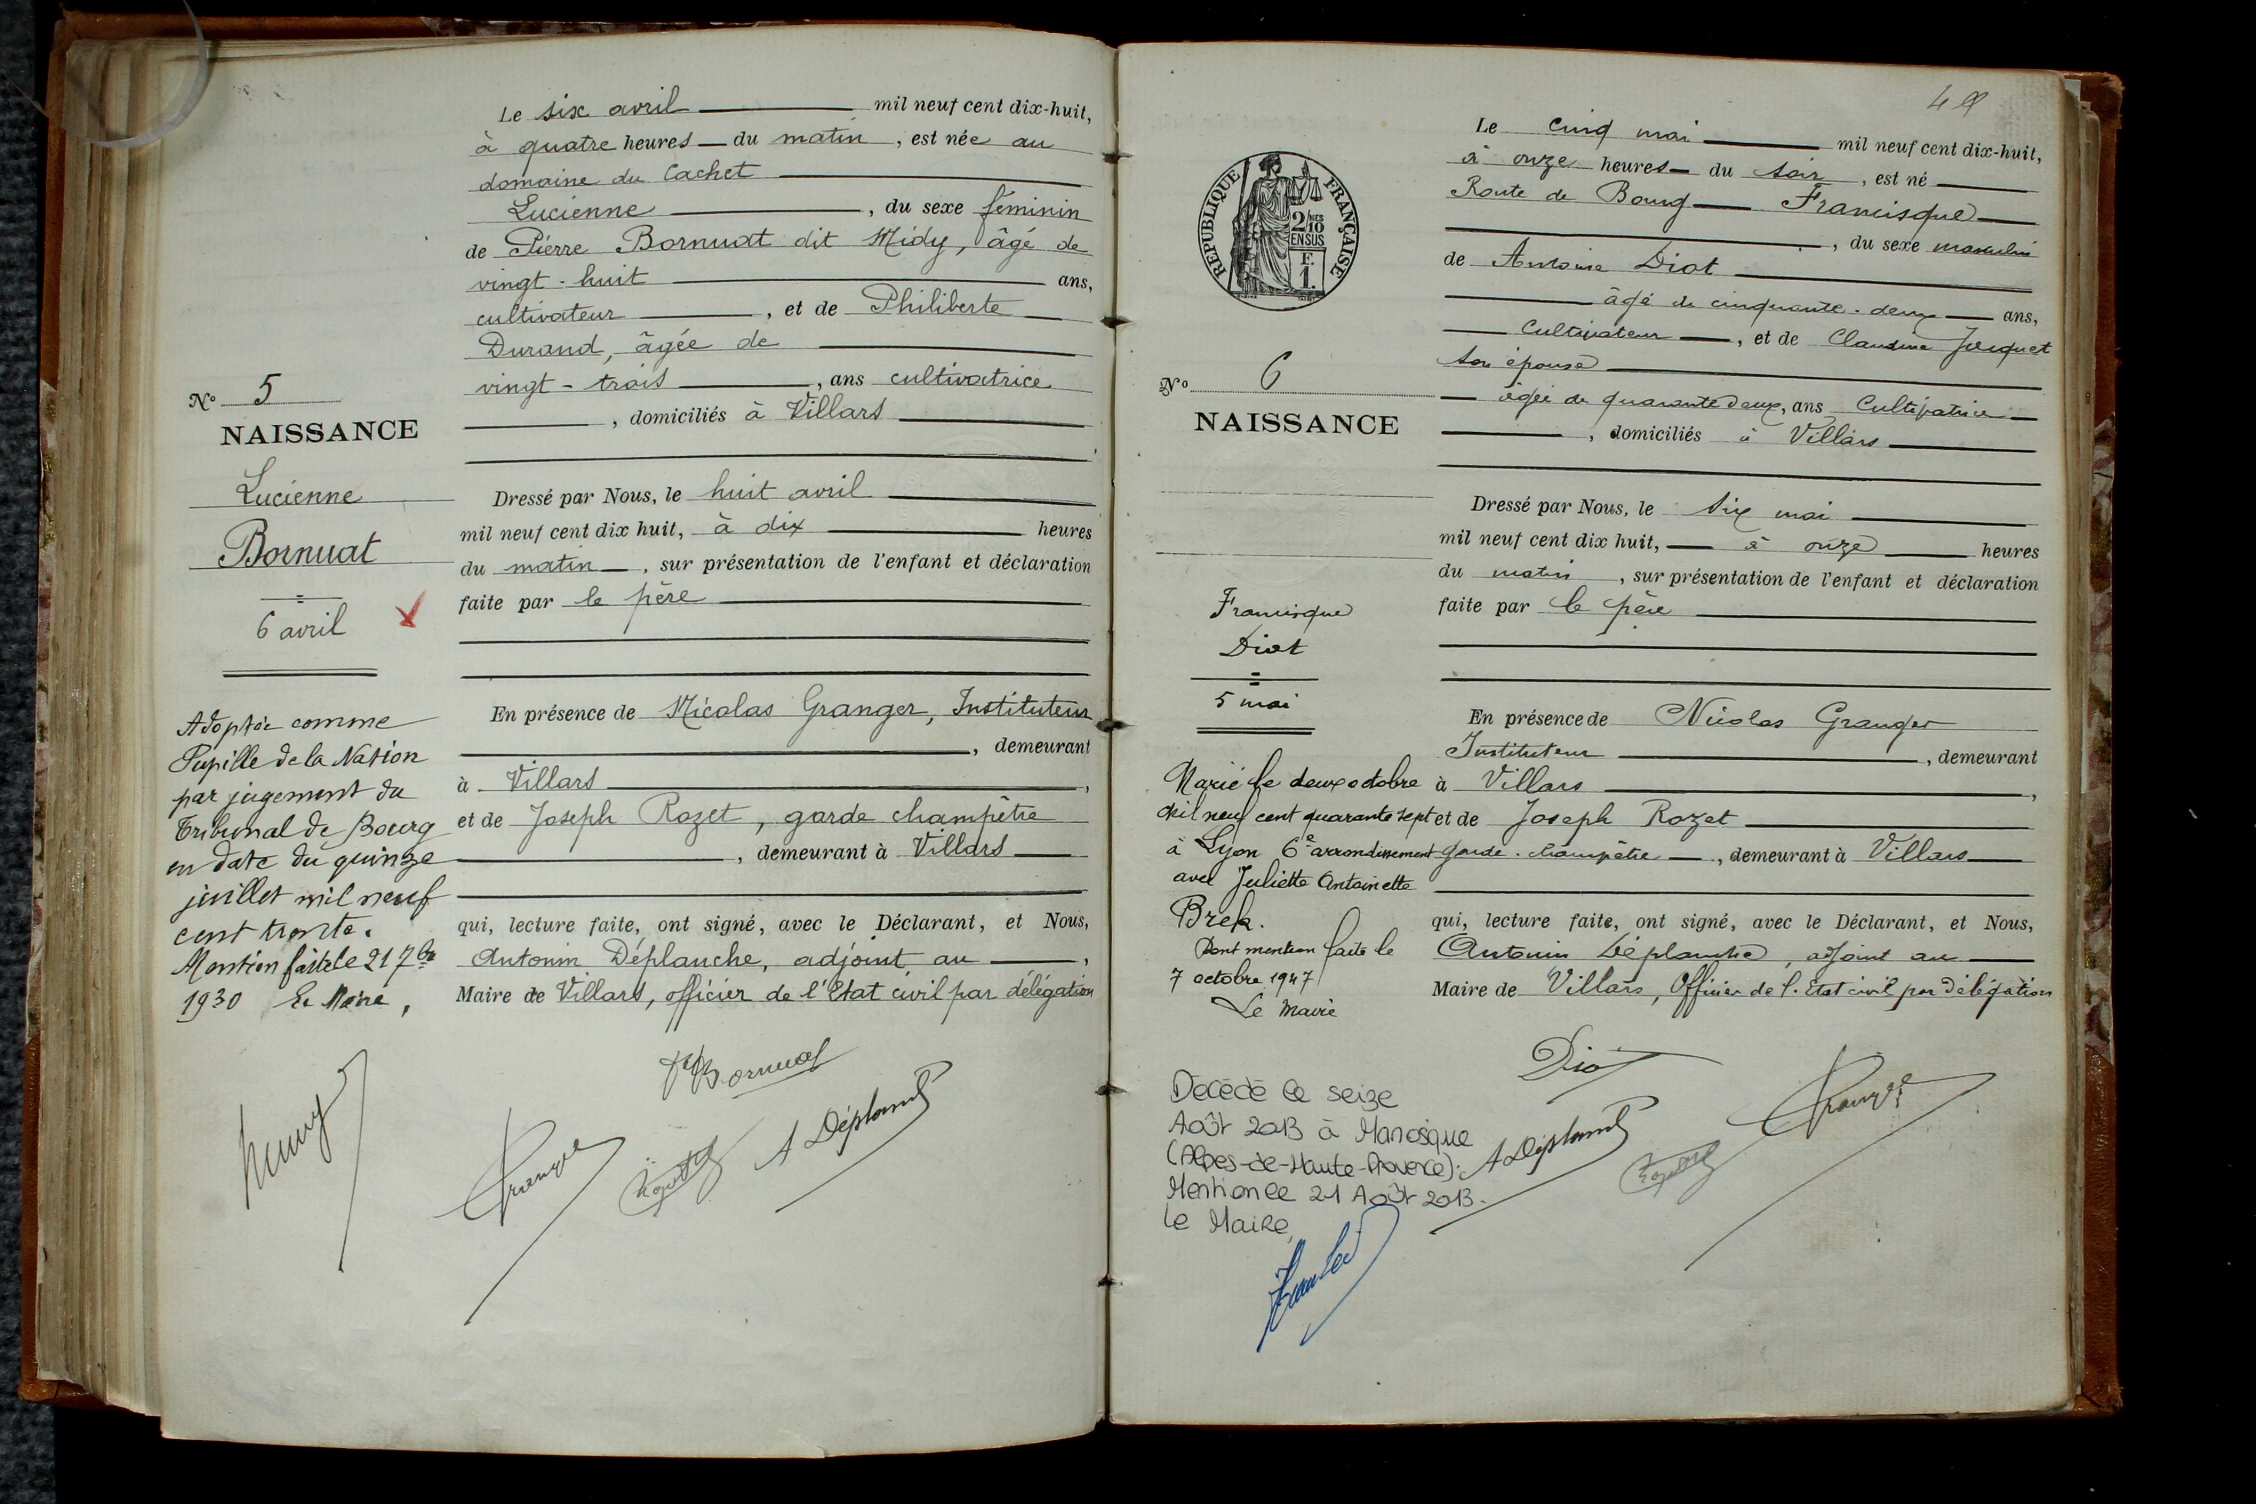 Le six avril mil neuf cent dix-huit,
à quatre heures du matin, est née au
domaine du Cachet
Lucienne, du sexe féminin
de Pierre Bornuat dit Midy, âgé de
vingt-huit ans,
cultivateur, et de Philiberte
Durand, âgée de
vingt-trois, ans cultivatrice
, domiciliés à Villars
Nº 5
NAISSANCE
Lucienne
Bornuat
6 avril
Dressé par Nous, le huit avril
mil neuf cent dix huit, à dix heures
du matin, sur présentation de l'enfant et déclaration
faite par le père
En présence de Nicolas Granger, Instituteur
, demeurant
à Villars,
et de Joseph Rozet, garde champêtre
, demeurant à Villars
qui, lecture faite, ont signé, avec le Déclarant, et Nous,
Antonin Déplanche, adjoint au,
Maire de Villars, officier de l'Etat civil par délégation
Adoptée comme
Pupille de la Nation
par jugement du
Tribunal de Bourg
en date du quinze
juillet mil neuf
cent trente.
Mention faite le 21 7bre
1930 Le Maire,
Bornuat
A Déplanche
49
RÉPUBLIQUE FRANÇAISE
2/10 MES
EN SUS
F.
1.
Le cinq mai mil neuf cent dix-huit,
à onze heures du soir, est né
Route de Bourg Francisque
, du sexe masculin
de Antoine Diot
âgé de cinquante-deux ans,
Cultivateur, et de Claudine Joequet
son épouse
âgée de quarante deux, ans Cultivatrice
, domiciliés à Villars
Nº 6
NAISSANCE
Francisque
Diot
5 mai
Dressé par Nous, le six mai
mil neuf cent dix huit, à onze heures
du matin, sur présentation de l'enfant et déclaration
faite par le père
En présence de Nicolas Granger
Instituteur, demeurant
à Villars,
et de Joseph Rozet
garde-champêtre, demeurant à Villars
qui, lecture faite, ont signé, avec le Déclarant, et Nous,
Antonin Déplanche, adjoint au
Maire de Villars, Officier de l'Etat civil par délégation
Marié le deux octobre
mil neuf cent quarante sept
à Lyon 6e arrondissement
avec Juliette Antoinette
Brek.
Dont mention faite le
7 octobre 1947
Le Maire
Décédé le seize
Août 2013 à Manosque
(Alpes-de-Haute-Provence).
Mention le 21 Août 2013.
Le Maire,
Diot
A Déplanche